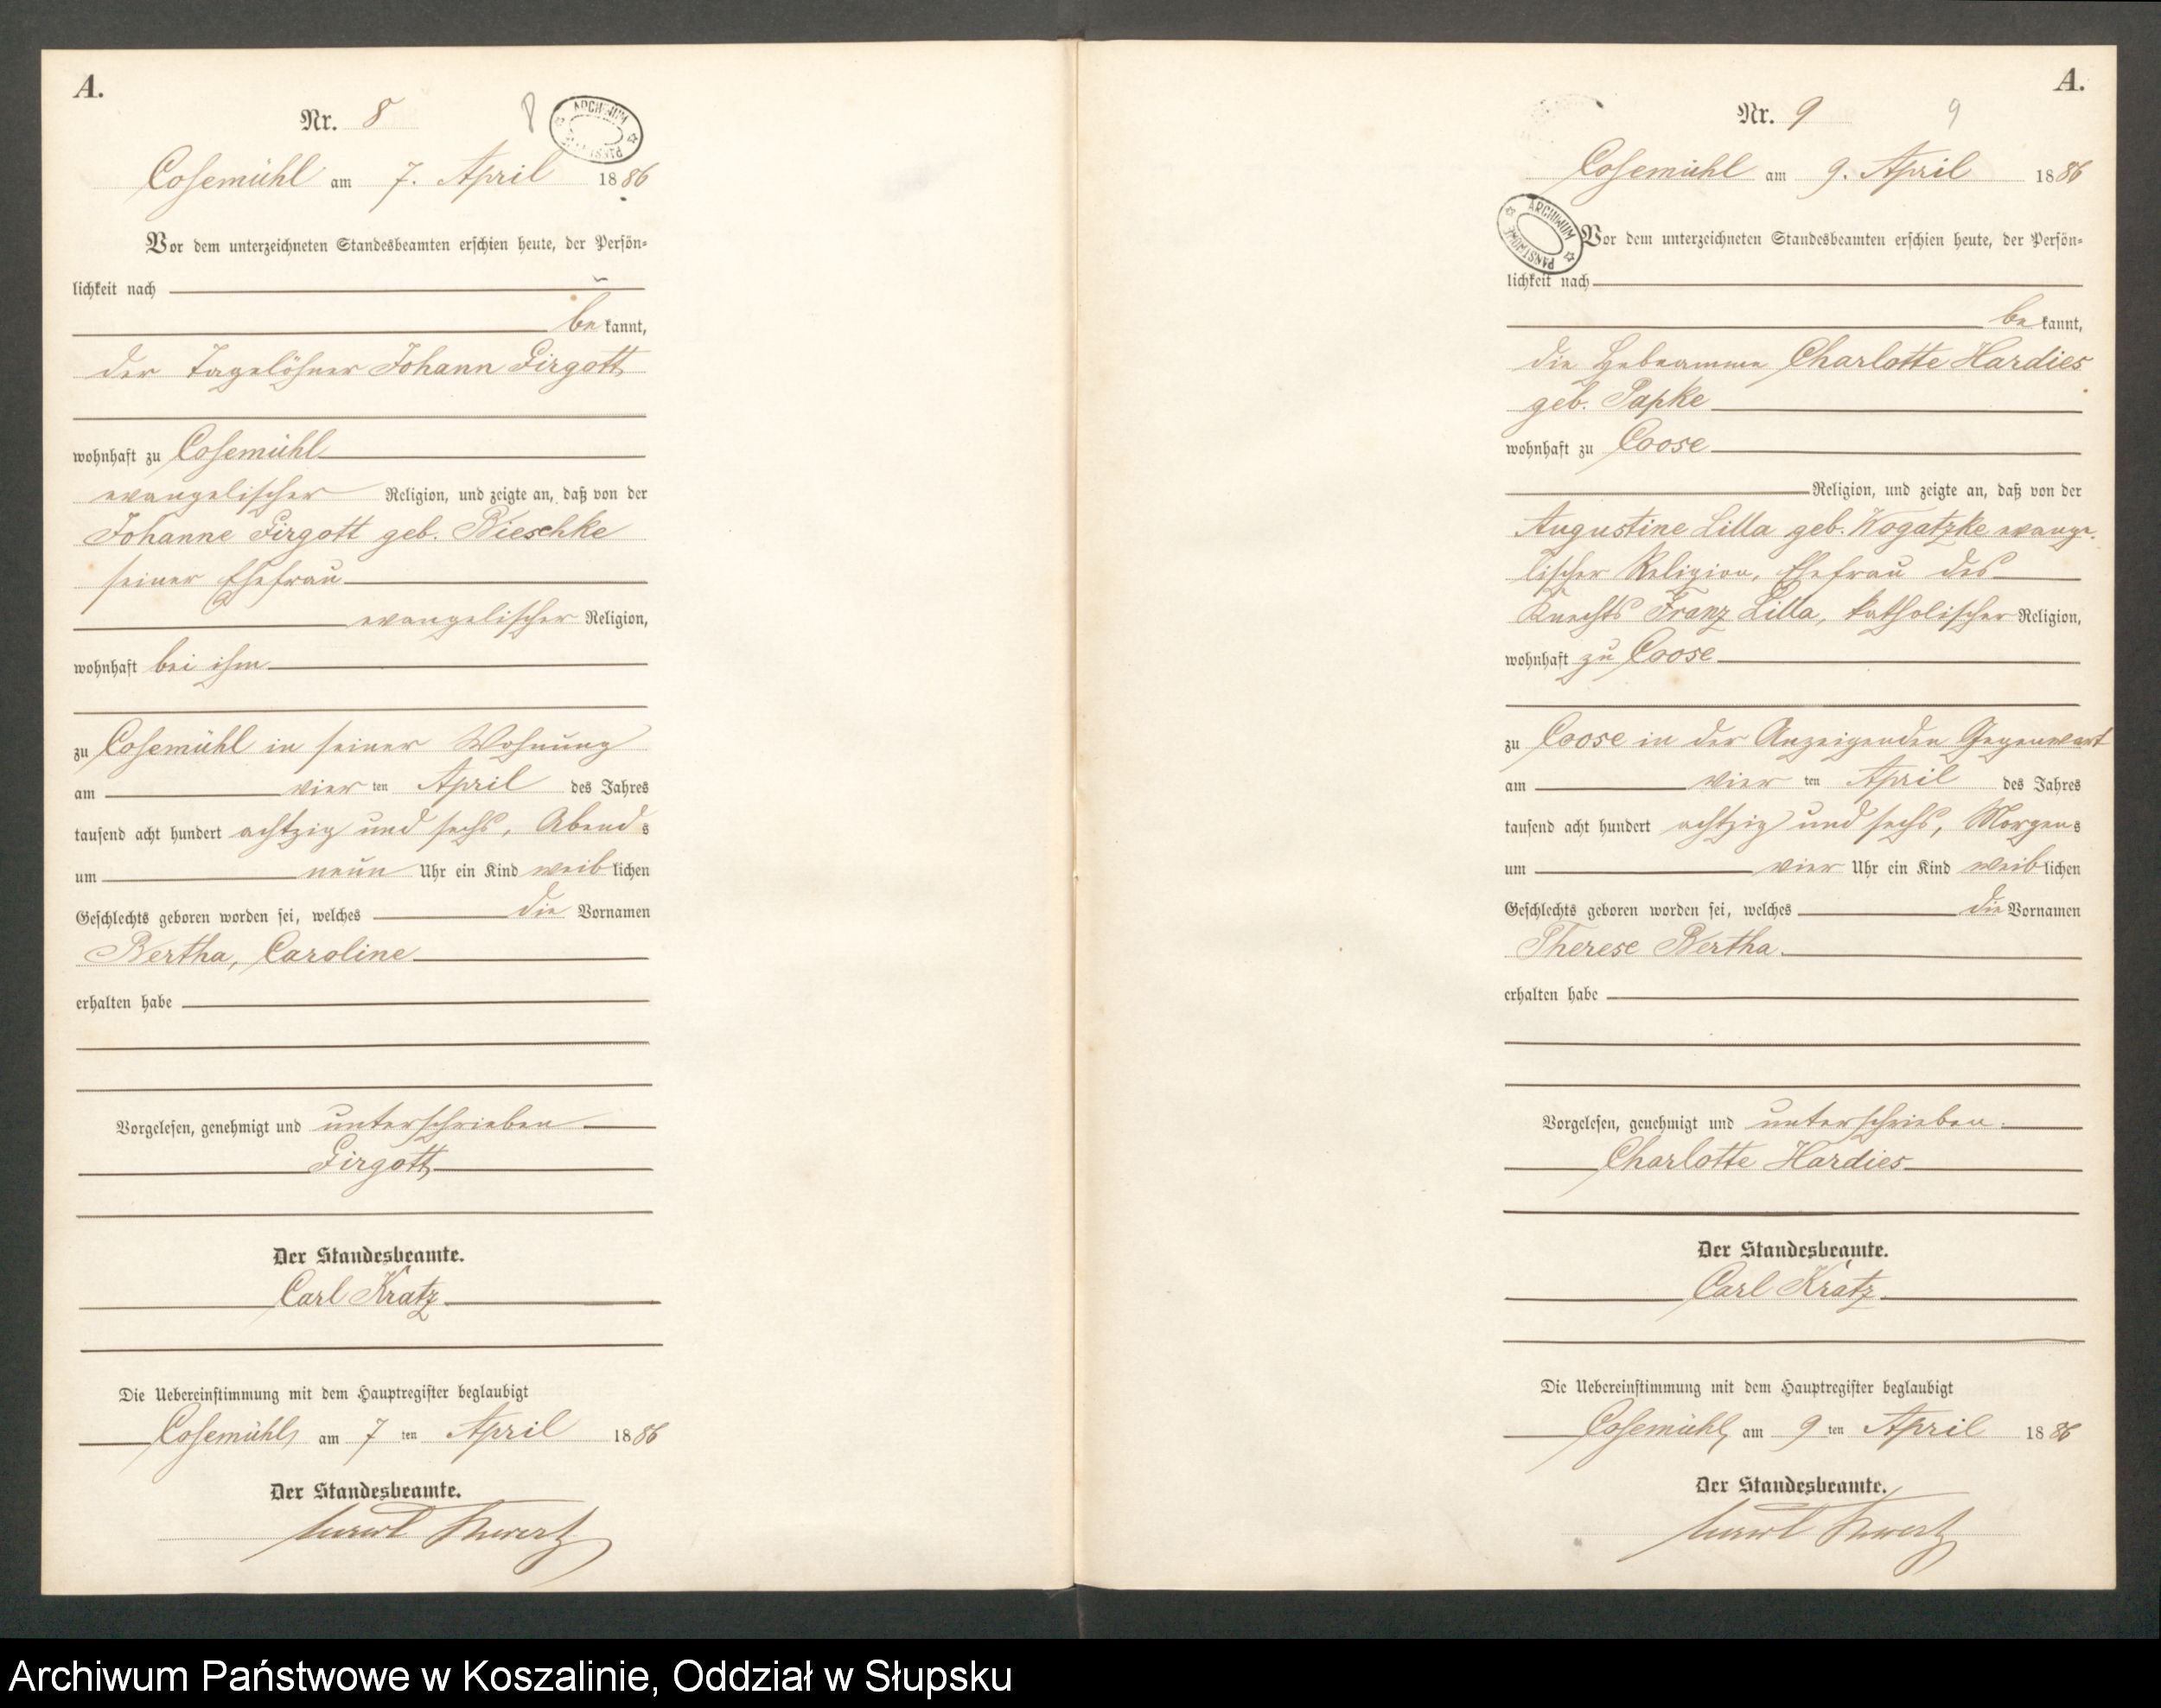 A.
Nr. 8
8
ARCHIWUM PAŃSTWOWE
Cosemühl am 7. April 1886
Vor dem unterzeichneten Standesbeamten erschien heute, der Persön-
lichkeit nach
bekannt,
der Tagelöhner Johann Girgott
wohnhaft zu Cosemühl
evangelischer Religion, und zeigte an, daß von der
Johanne Girgott geb. Bieschke
seiner Ehefrau
evangelischer Religion,
wohnhaft bei ihm
zu Cosemühl in seiner Wohnung
am vierten April des Jahres
tausend acht hundert achtzig und sechs, Abends
um neun Uhr ein Kind weiblichen
Geschlechts geboren worden sei, welches die Vornamen
Bertha, Caroline
erhalten habe
Vorgelesen, genehmigt und unterschrieben
Girgott
Der Standesbeamte.
Carl Kratz
Die Uebereinstimmung mit dem Hauptregister beglaubigt
Cosemühl, am 7ten April 1886
Der Standesbeamte.
A.
Nr. 9
9
Cosemühl am 9. April 1886
ARCHIWUM PAŃSTWOWE
Vor dem unterzeichneten Standesbeamten erschien heute, der Persön-
lichkeit nach
bekannt,
die Hebeamme Charlotte Hardies
geb. Papke
wohnhaft zu Coose
Religion, und zeigte an, daß von der
Augustine Lilla geb. Wogatzke evange-
lischer Religion, Ehefrau des
Knechts Franz Lilla, katholischer Religion,
wohnhaft zu Coose
zu Coose in der Anzeigenden Gegenwart
am vierten April des Jahres
tausend acht hundert achtzig und sechs, Morgens
um vier Uhr ein Kind weiblichen
Geschlechts geboren worden sei, welches die Vornamen
Therese Bertha.
erhalten habe
Vorgelesen, genehmigt und unterschrieben.
Charlotte Hardies
Der Standesbeamte.
Carl Kratz.
Die Uebereinstimmung mit dem Hauptregister beglaubigt
Cosemühl, am 9ten April 1886
Der Standesbeamte.
Archiwum Państwowe w Koszalinie, Oddział w Słupsku